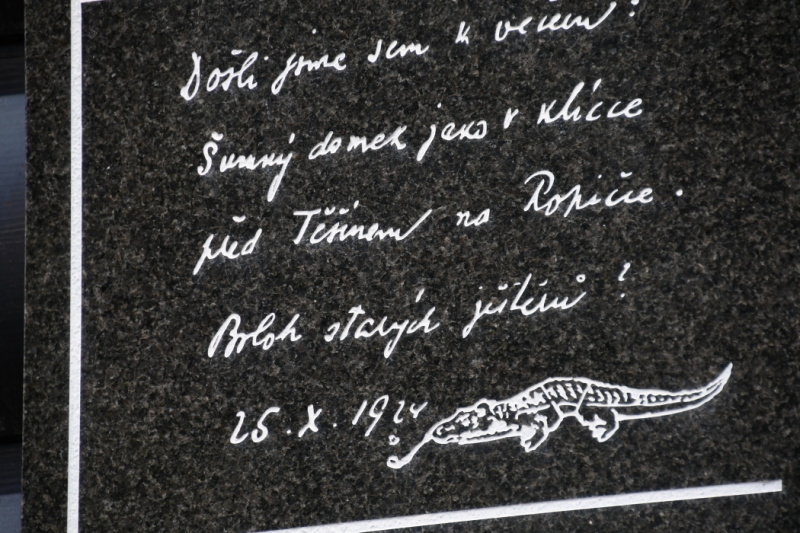 Došli jsme sem k večeru:
Šumný domek jako v klícce
před Těšínem na Ropičce.
Brloh starých ještěrů!
25.X.1924